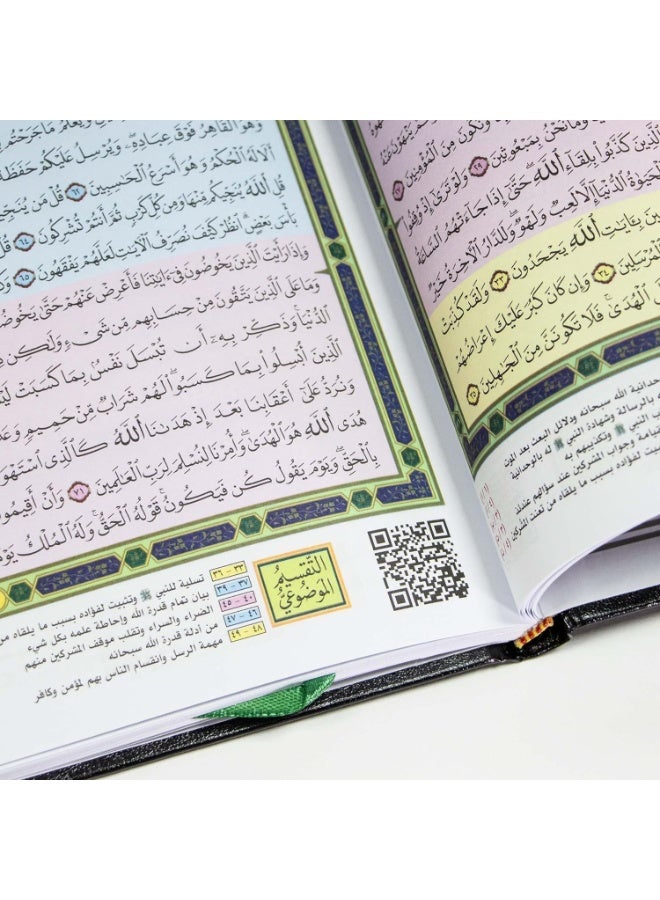 وَنَكُونَ مِنَ الْمُؤْمِنِينَ
وَمَا نَحْنُ بِمَبْعُوثِينَ ٢٩ وَلَوْ تَرَىٰ إِذْ وُقِفُوا
الَّذِينَ كَذَّبُوا بِلِقَاءِ اللَّهِ حَتَّىٰ إِذَا جَاءَتْهُمُ السَّاعَةُ
الْحَيَوٰةُ الدُّنْيَا إِلَّا لَعِبٌ وَلَهْوٌ وَلَلدَّارُ الْآخِرَةُ خَيْرٌ
بِـَٔايَٰتِ اللَّهِ يَجْحَدُونَ ٣٣ وَلَقَدْ كُذِّبَتْ
الْمُرْسَلِينَ ٣٤ وَإِن كَانَ كَبُرَ عَلَيْكَ إِعْرَاضُهُمْ
الْهُدَىٰ فَلَا تَكُونَنَّ مِنَ الْجَٰهِلِينَ ٣٥
وحدانية الله سبحانه ودلائل البعث بعد الموت
بالرسالة وشهادة النبي ﷺ له بالوحدانية
النبي ﷺ وتكذيبهم به
القيامة وجواب المشركين عند سؤالهم عندئذ
لفؤاده بسبب ما يلقاه من تعنت المشركين
وَهُوَ الْقَاهِرُ فَوْقَ عِبَادِهِ وَيُرْسِلُ عَلَيْكُمْ حَفَظَةً
أَلَا لَهُ الْحُكْمُ وَهُوَ أَسْرَعُ الْحَٰسِبِينَ ٦٢ قُلْ مَن يُنَجِّيكُم
قُلِ اللَّهُ يُنَجِّيكُم مِّنْهَا وَمِن كُلِّ كَرْبٍ ثُمَّ أَنتُمْ تُشْرِكُونَ ٦٤ قُلْ
بَأْسَ بَعْضٍ انظُرْ كَيْفَ نُصَرِّفُ الْآيَٰتِ لَعَلَّهُمْ يَفْقَهُونَ ٦٥
وَإِذَا رَأَيْتَ الَّذِينَ يَخُوضُونَ فِي ءَايَٰتِنَا فَأَعْرِضْ عَنْهُمْ حَتَّىٰ يَخُوضُوا
وَمَا عَلَى الَّذِينَ يَتَّقُونَ مِنْ حِسَابِهِم مِّن شَيْءٍ وَلَٰكِن
الدُّنْيَا وَذَكِّرْ بِهِ أَن تُبْسَلَ نَفْسٌ بِمَا كَسَبَتْ لَيْسَ
الَّذِينَ أُبْسِلُوا بِمَا كَسَبُوا لَهُمْ شَرَابٌ مِّنْ حَمِيمٍ
وَنُرَدُّ عَلَىٰ أَعْقَابِنَا بَعْدَ إِذْ هَدَىٰنَا اللَّهُ كَالَّذِي اسْتَهْوَتْهُ
هُدَى اللَّهِ هُوَ الْهُدَىٰ وَأُمِرْنَا لِنُسْلِمَ لِرَبِّ الْعَٰلَمِينَ ٧١ وَأَنْ أَقِيمُوا
بِالْحَقِّ وَيَوْمَ يَقُولُ كُن فَيَكُونُ قَوْلُهُ الْحَقُّ وَلَهُ الْمُلْكُ يَوْمَ
التَّقسِيمُ
الموَضُوعِيُّ
٣٣ - ٣٦ تسلية للنبي ﷺ وتثبيت لفؤاده بسبب ما يلقاه من
٣٧ - ٣٩ بيان تمام قدرة الله وإحاطة علمه بكل شيء
٤٠ - ٤٥ الضراء والسراء وتقلب موقف المشركين منهم
٤٦ - ٤٧ من أدلة قدرة الله سبحانه
٤٨ - ٤٩ مهمة الرسل وانقسام الناس بهم لمؤمن وكافر